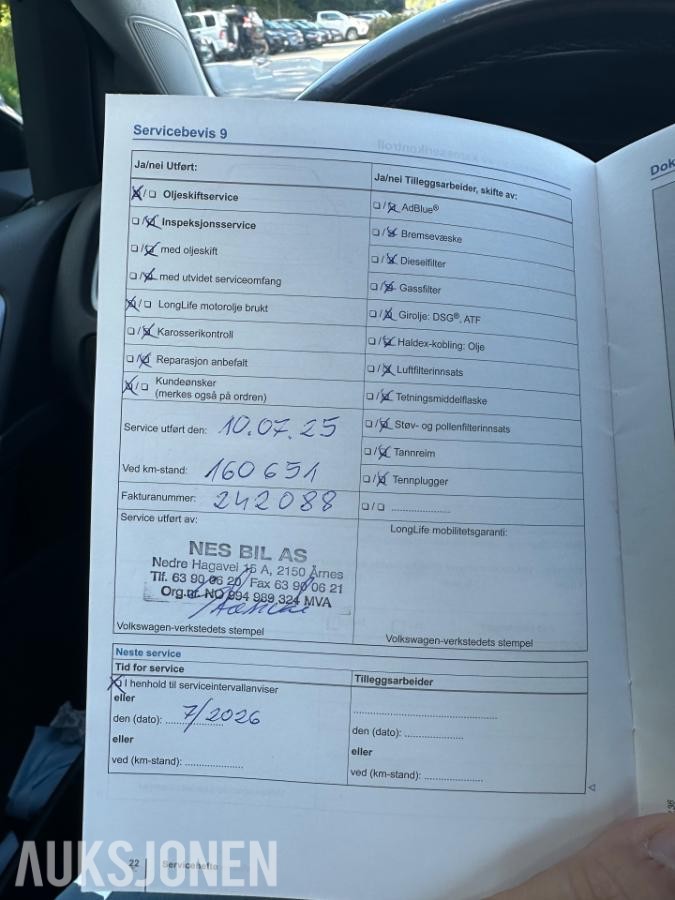 Servicebevis 9
Ja/nei Utført:
☒/☐ Oljeskiftservice
☐/☒ Inspeksjonsservice
☐/☒ med oljeskift
☐/☒ med utvidet serviceomfang
☒/☐ LongLife motorolje brukt
☐/☒ Karosserikontroll
☐/☒ Reparasjon anbefalt
☒/☐ Kundeønsker
(merkes også på ordren)
Service utført den: 10.07.25
Ved km-stand: 160651
Fakturanummer: 242088
Service utført av:
NES BIL AS
Nedre Hagavei 15 A, 2150 Årnes
Tlf. 63 90 06 20 Fax 63 90 06 21
Org.nr. NO 994 989 324 MVA
Volkswagen-verkstedets stempel
Ja/nei Tilleggsarbeider, skifte av:
☐/☒ AdBlue®
☐/☒ Bremsevæske
☐/☒ Dieselfilter
☐/☒ Gassfilter
☐/☒ Girolje: DSG®, ATF
☐/☒ Haldex-kobling: Olje
☐/☒ Luftfilterinnsats
☐/☒ Tetningsmiddelflaske
☐/☒ Støv- og pollenfilterinnsats
☐/☒ Tannreim
☐/☒ Tennplugger
☐/☐ ....................
LongLife mobilitetsgaranti:
Volkswagen-verkstedets stempel
Neste service
Tid for service
☒ I henhold til serviceintervallanviser
eller
den (dato): 7/2026
eller
ved (km-stand): ....................
Tilleggsarbeider
den (dato): ....................
eller
ved (km-stand): ....................
22
Servicehefte
Dok
AUKSJONEN